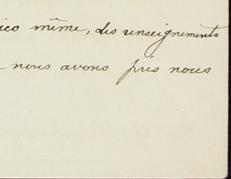 ico même, des renseignements
nous avons pris nous